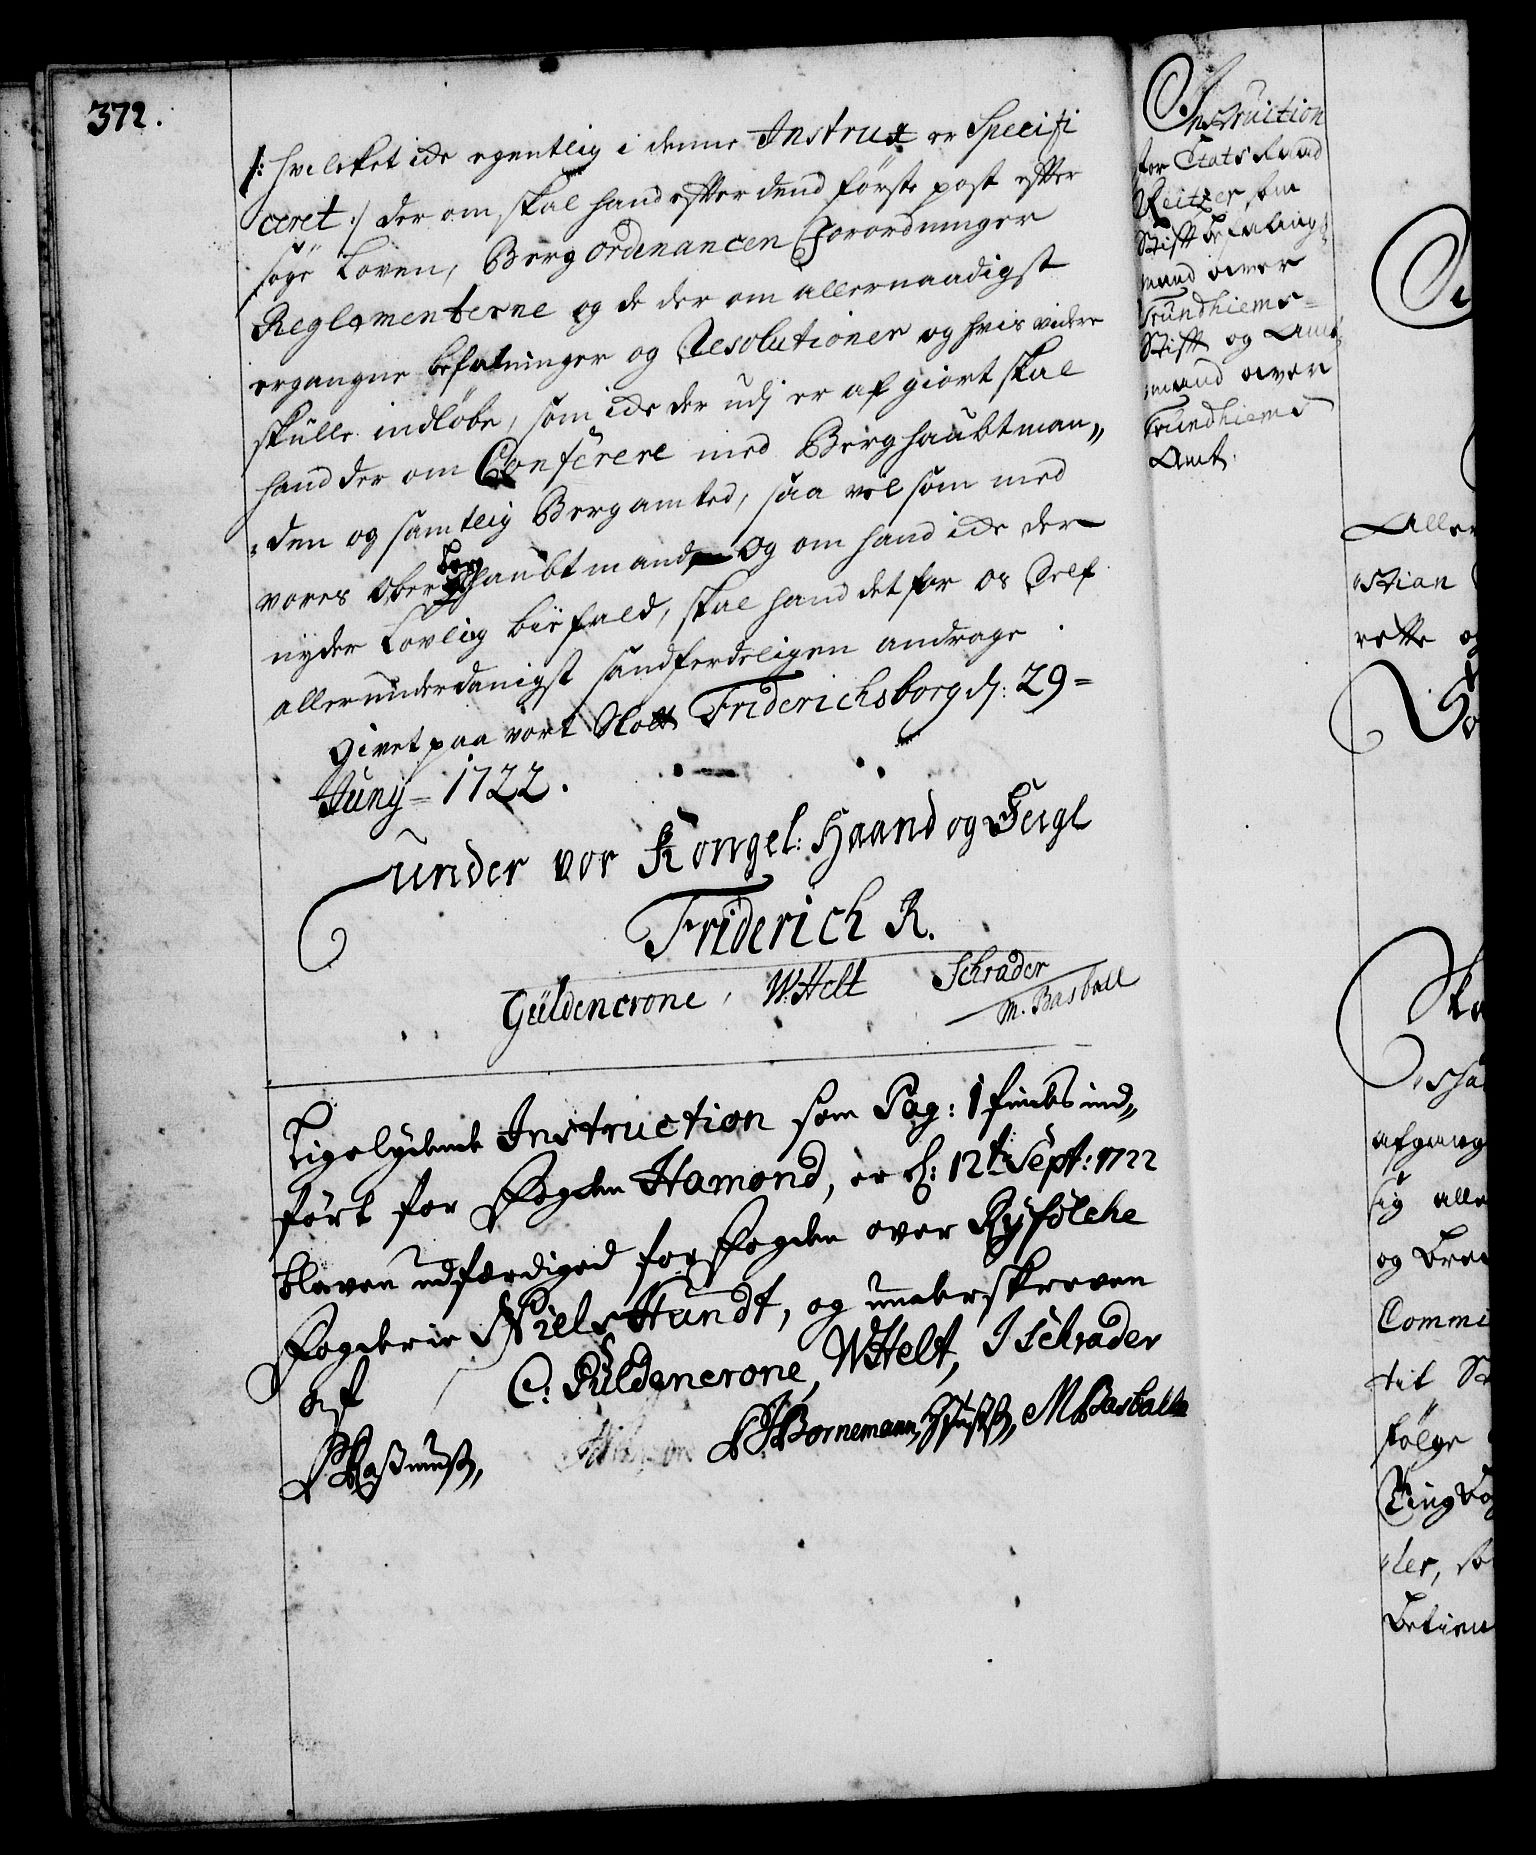 372.
/: hvilcket icke egentlig i denne Instrux er Specifi
ceret :/ der om skal hand efter dend förste post efter
søge Loven, Berg ordinancen Forordninger
Reglementerne og de der om allernaadigst
ergangne befalninger og Resolutioner og hvis videre
skulle indløbe, som icke der udj er af giort skal
hand der om Conferere med Berghaubtman„
„den og samtlig Bergamted, saa vel som med
vores Ober Berghaubtmand Og om hand icke der
nyder Lovlig biefald, skal hand det for os Self
allerunderdanigst sandferdeligen andrage.
Givet paa vort Slott Friderichsborg d: 29=
Juny= 1722.
under vor Kongel: Haand og Seigl
Friderich R.
Güldencrone, W: Helt Schrader
M. Basball
Ligelydende Instruction som Pag: 1 findes ind„
fört for Fogden Hamond, er d: 12te Sept: 1722
bleven udfærdiged for Fogden over Ryfölche
Fogderie Niels Hundt, og underskreven
af C: Güldencrone, WHelt, J Schrader
Rasmuss, Bornemann, MBasballe
Instruction
for Etats Raad
Reitzer som
Stifft befalings
mand over
Trundhiems=
Stifft og Amt
mand over
Trundhiems
Amt.
Aller
„stian
rette og
afgang
sig alle
og Bre
Commi
til St
følge
Ting
„ler, so
Betien